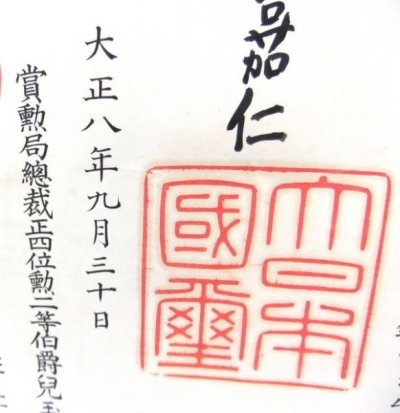 嘉仁
大日本
國璽
大正八年九月三十日
賞勳局總裁正四位勳二等伯爵兒玉